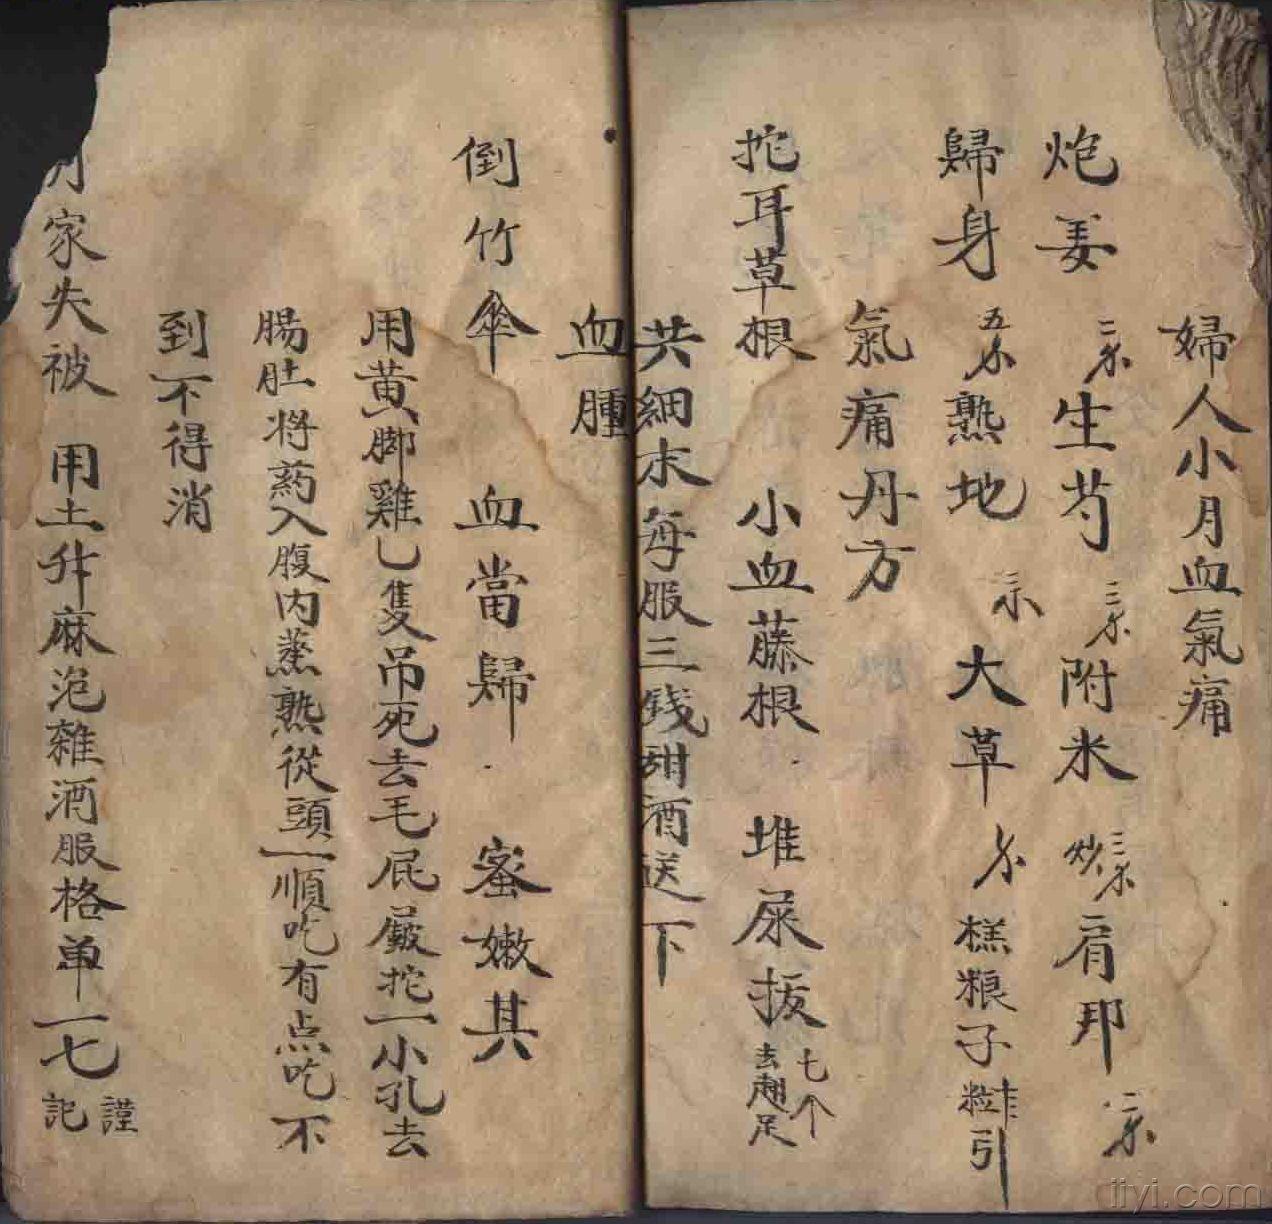 婦人小月血氣痛
炮姜 二 生芍 三 附米 炒三 肩 二
歸身 五 熟地 三 大草 糕粮子 粒 引
氣痛丹方
挖耳草根 小血藤根 堆屎拔 七个 去翅足
共細末每服三钱甜酒送下
血腫
倒竹傘 血當歸 蜜嫩其
用黄脚雞乚隻吊死去毛屁 挖一小孔去
腸肚将葯入腹内蒸熟從頭一順吃有点吃不
到不得消
家失被 用土升麻泡雜酒服格单一七 謹記
iiyi.com